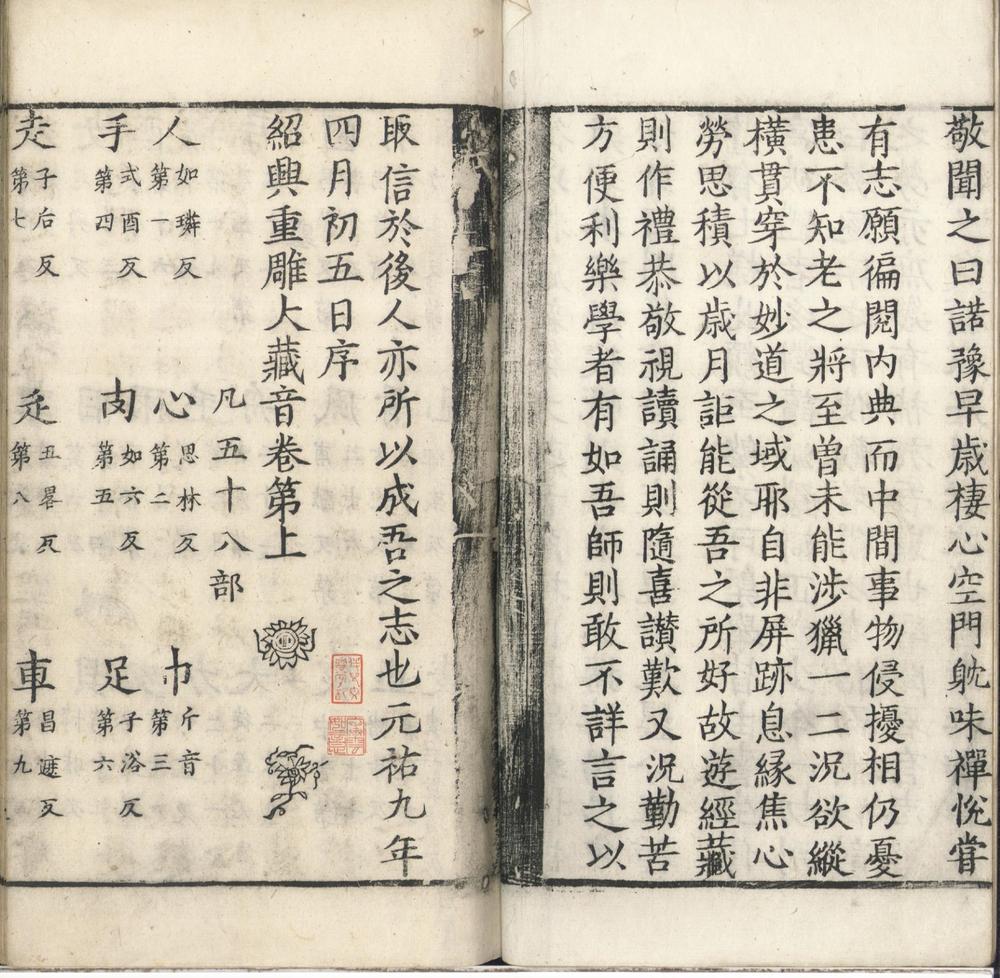 敬聞之曰諾豫早歳棲心空門躭味禪悅甞
有志願徧閱内典而中間事物侵擾相仍憂
患不知老之將至曽未能涉獵一二況欲縱
橫貫穿於妙道之域耶自非屏跡息縁焦心
勞思積以歳月詎能從吾之所好故遊經藏
則作禮恭敬視讀誦則隨喜讃歎又況勤苦
方便利樂學者有如吾師則敢不詳言之以
取信於後人亦所以成吾之志也元祐九年
四月初五日序
紹興重雕大藏音卷第上
凡五十八部
人如璘反第一 心思林反第二 巾斤音第三
手式酉反第四 肉如六反第五 足子浴反第六
走子后反第七 辵丑畧反第八 車昌遮反第九